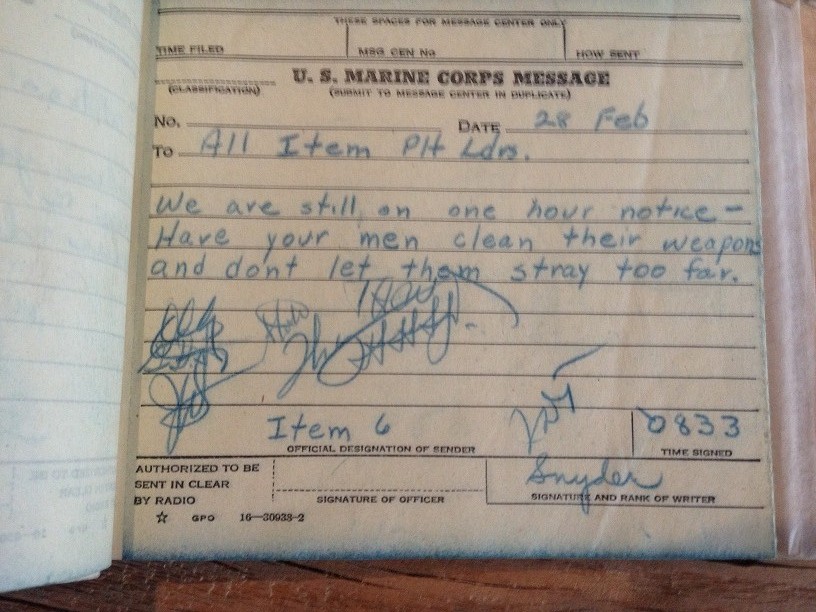 THESE SPACES FOR MESSAGE CENTER ONLY
TIME FILED MSG CEN No HOW SENT
U. S. MARINE CORPS MESSAGE
(CLASSIFICATION) (SUBMIT TO MESSAGE CENTER IN DUPLICATE)
No. DATE 28 Feb
To All Item Plt Ldrs.
We are still on one hour notice -
Have your men clean their weapons
and dont let them stray too far.
Item 6 0833
OFFICIAL DESIGNATION OF SENDER TIME SIGNED
AUTHORIZED TO BE
SENT IN CLEAR
BY RADIO
Snyder
SIGNATURE OF OFFICER SIGNATURE AND RANK OF WRITER
☆ GPO 16—30938-2